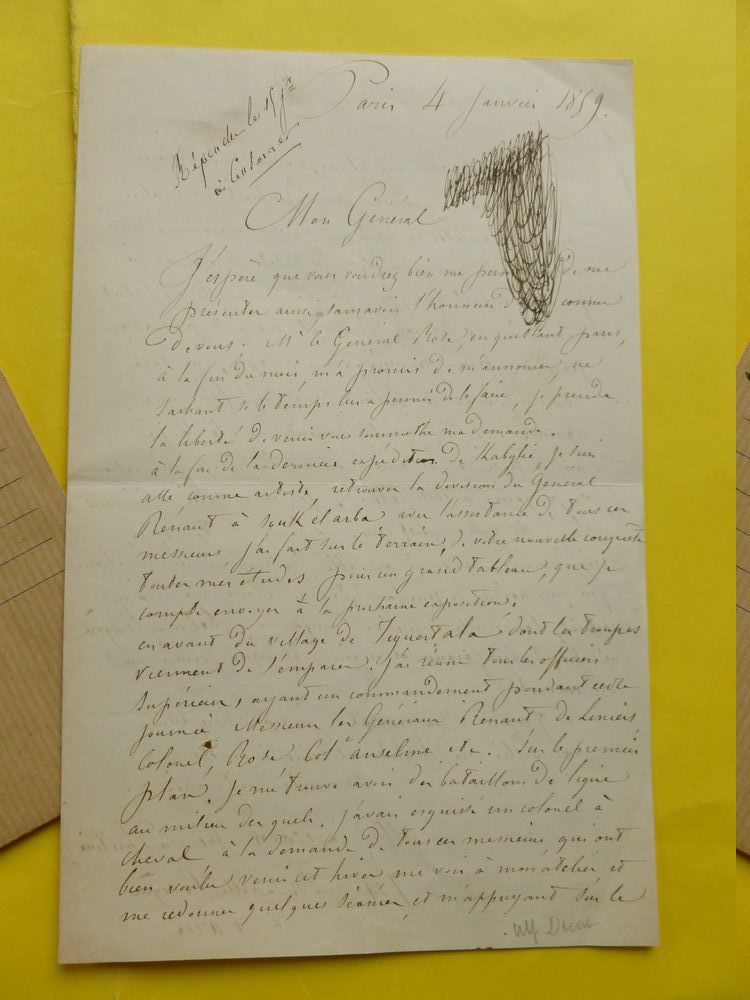 Paris 4 Janvier 1859.
Répondu le 15 jr
à
Mon Général
J'espère que vous voudrez bien me de me
présenter ainsi sans avoir l'honneur connu
de vous. Mr le Général Rose, en quittant Paris,
à la fin du mois, m'a promis de m'annoncer, ne
sachant si le temps lui a permis de le faire, je prends
la liberté de venir vous soumettre ma demande.
à la fin de la dernière expédition de Kabylie, je suis
allé comme artiste, retrouver la division du Général
Renaut à Souk el arba avec l'assistance de tous ces
messieurs j'ai fait sur le terrain, de votre nouvelle conquête
toutes mes études pour un grand tableau, que je
compte envoyer à la prochaine exposition.
en avant du village de Tiguert ala dont les troupes
viennent de s'emparer. j'ai réuni tous les officiers
supérieurs, ayant un commandement pendant cette
journée Messieurs les Généraux Renaut de Liniers
Colonel, Rose Col Anselme etc. Sur le premier
plan, je me trouve avoir des bataillons de ligne
au milieu desquels j'avais esquissé un colonel à
cheval à la demande de tous ces messieurs, qui ont
bien voulu venir cet hiver me voir à mon atelier, et
me redonner quelques séances, et m'appuyant sur le
Alf